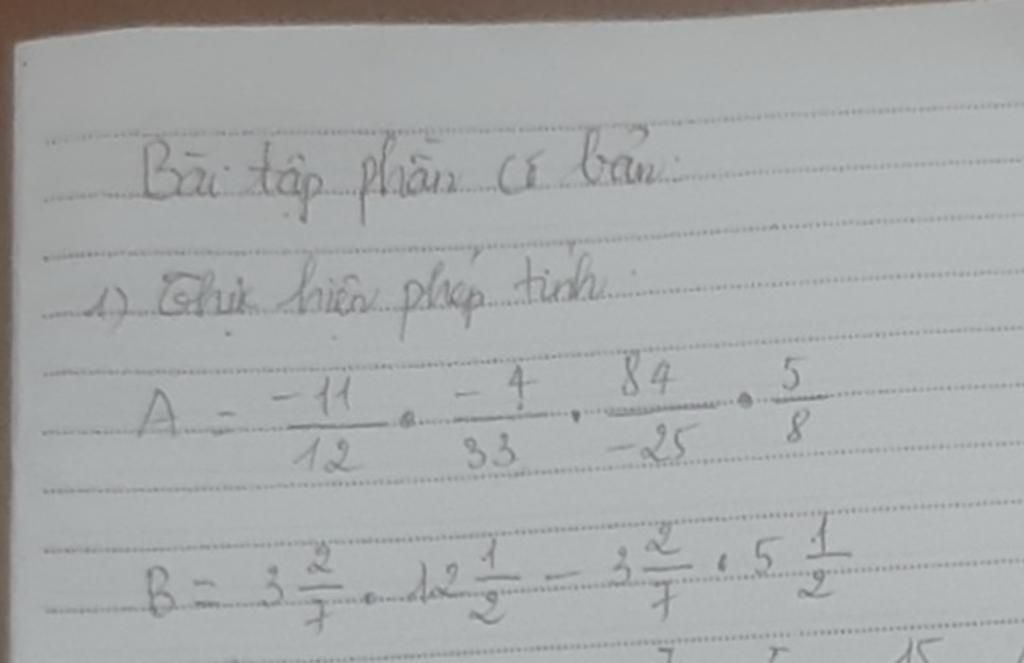 Bài tập phần cơ bản:
1) Thực hiện phép tính:
A = -11/12 . -4/33 . 84/-25 . 5/8
B = 3 2/7 . 12 1/2 - 3 2/7 . 5 1/2